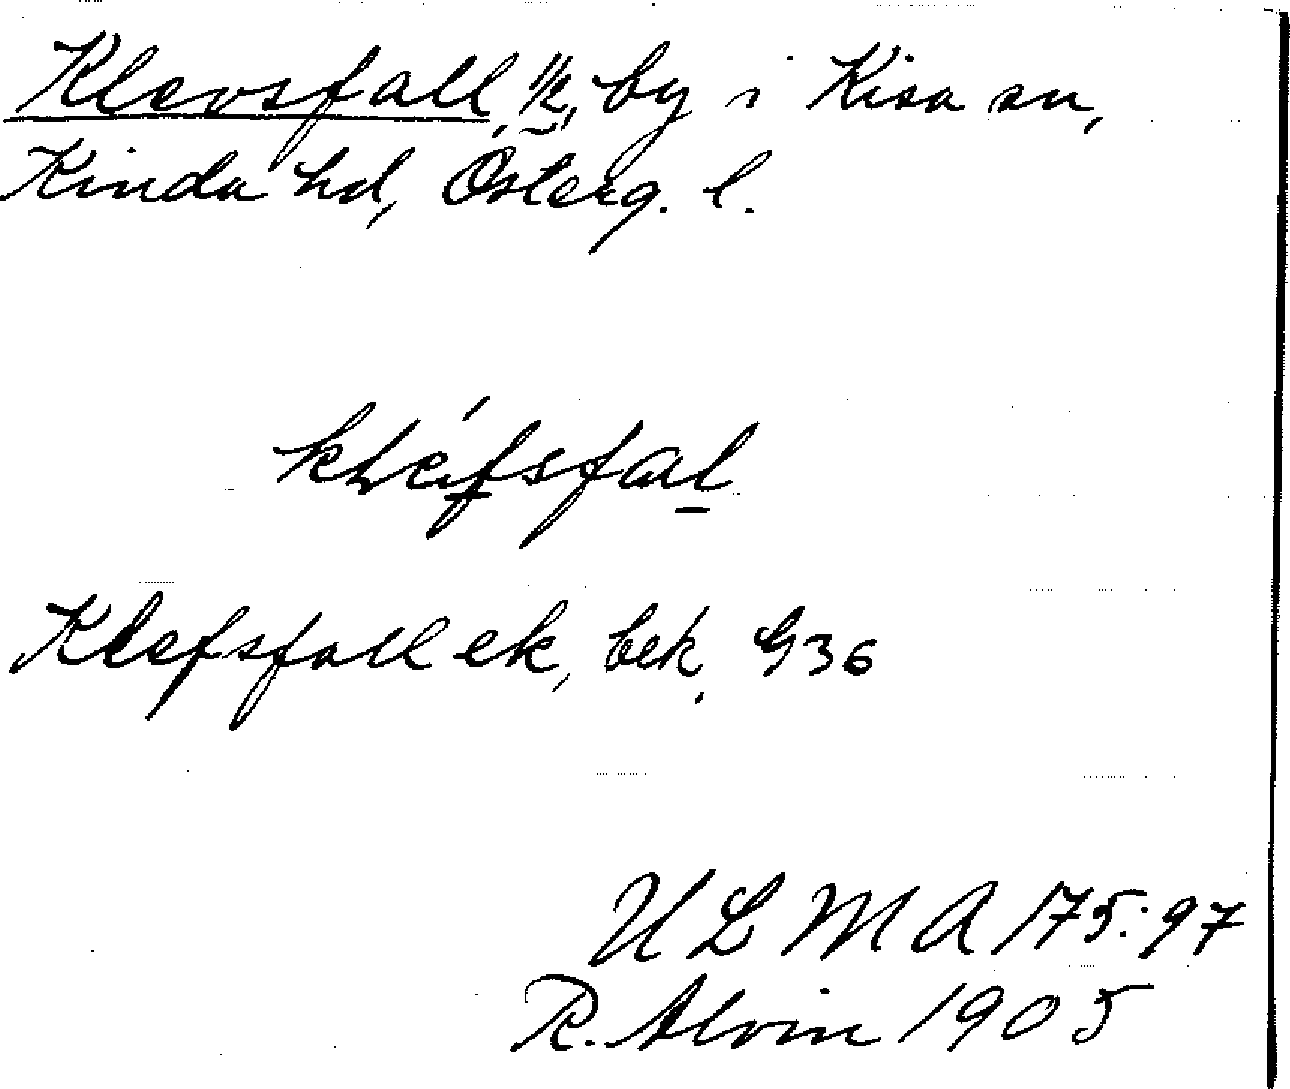 Klevsfall, 1/2, by i Kisa sn,
Kinda hd, Österg. l.
Klefsfall ek, bek. G36
ULMA 175:97
R. Alvin 1905